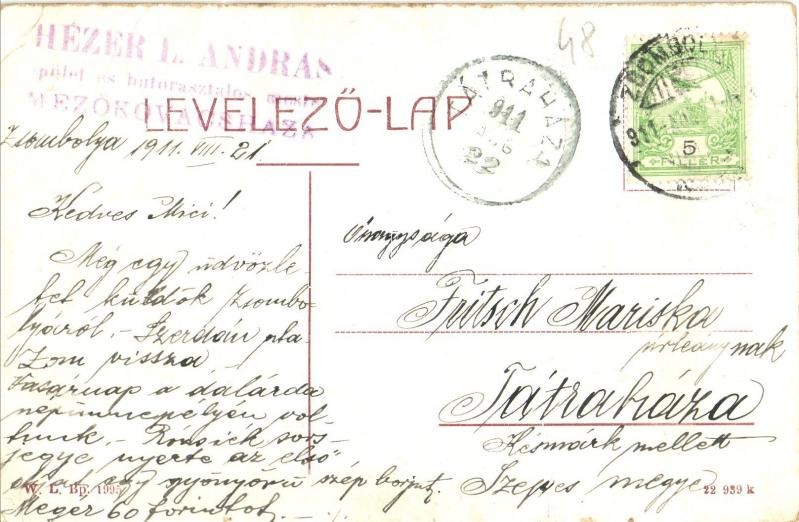 HÉZER L. ANDRÁS
épület és bútorasztalos mester
MEZŐKOVÁCSHÁZA
LEVELEZŐ-LAP
48
TÁTRAHÁZA
911
AUG
22
ZSOMBOLYA
911
5
FILLÉR
Zsombolya 1911. VIII. 21.
Kedves Mici!
Még egy üdvözle-
tet küldök Zsombo-
lyáról. - Szerdán uta-
zom vissza
Vasárnap a dalárda
népünnepélyén vol-
tunk. - Rónaiék sors-
jegye nyerte az első
díjat egy gyönyörű szép borjut.
Megér 60 forintot. -
Önagysága
Fritsch Mariska
urleánynak
Tátraháza
Késmárk mellett
Szepes megye
W. L. Bp. 1995
22 939 k